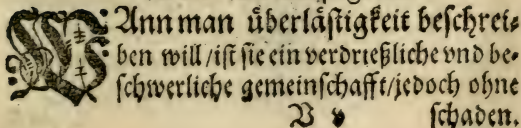 WAnn man uͤberlaͤſtigkeit beſchrei⸗
ben will / iſt ſie ein verdrießliche vnd be⸗
ſchwerliche gemeinſchafft / jedoch ohne
B v ſchaden.